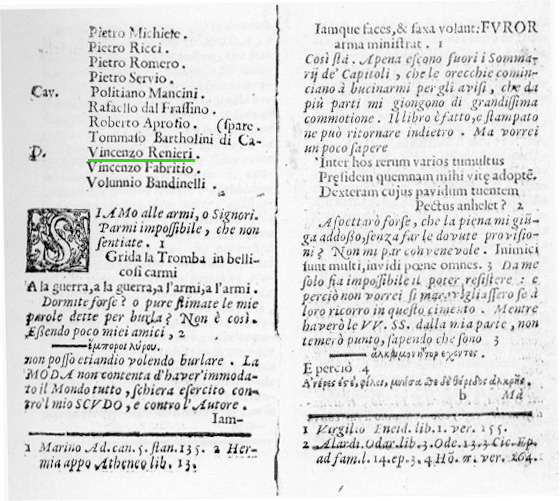 Pietro Michiele.
Pietro Ricci.
Pietro Romero.
Pietro Servio.
Cav. Politiano Mancini.
Rafaello dal Frassino.
Roberto Aprosio. (spare.
Tommaso Bartholini di Ca-
D. Vincenzo Renieri.
Vincenzo Fabritio.
Volunnio Bandinelli.
SIAMO alle armi, o Signori.
Parmi impossibile, che non
sentiate. 1
Grida la Tromba in belli-
cosi carmi
A la guerra, a la guerra, a l'armi, a l'armi.
Dormite forse? o pure stimate le mie
parole dette per burla? Non è così.
Essendo poco miei amici, 2
ἔμποροι λύρου.
non posso etiandio volendo burlare. La
MODA non contenta d'haver'immoda-
to il Mondo tutto, schiera esercito con-
tro'l mio SCVDO, e contro l'Autore.
Iam-
1 Marino Ad. can. 5. stan. 135. 2 Her-
mia appo Atheneo lib. 13.
Iamque faces, & saxa volant: FVROR
arma ministrat. 1
Così stà. Apena escono fuori i Somma-
rij de' Capitoli, che le orecchie comin-
ciano à bucinarmi per gli avisi, che da
più parti mi giongono di grandissima
commotione. Il libro è fatto, e stampato
ne può ritornare indietro. Ma vorrei
un poco sapere
Inter hos rerum varios tumultus
Præsidem quemnam mihi vitę adoptē.
Dexteram cujus pavidum tuentem
Pectus anhelet? 2
Aspettarò forse, che la piena mi giu-
ga addosso, senza far le dovute provisio-
ni? Non mi par convenevole. Inimici
sunt multi, invidi pœne omnes. 3 Da me
solo sia impossibile il poter resistere: e
perciò non vorrei si maravigliassero se à
loro ricorro in questo cimento. Mentre
haverò le VV. SS. dalla mia parte, non
temerò punto, sapendo che sono 3
E perciò 4
b Ma
1 Virgilio Eneid. lib. 1. ver. 155.
2 Alardi. Odar. lib. 3. Ode. 13. 3 Cic. Ep.
ad fam. l. 14. ep. 3. 4 Hō. π. ver. 264.